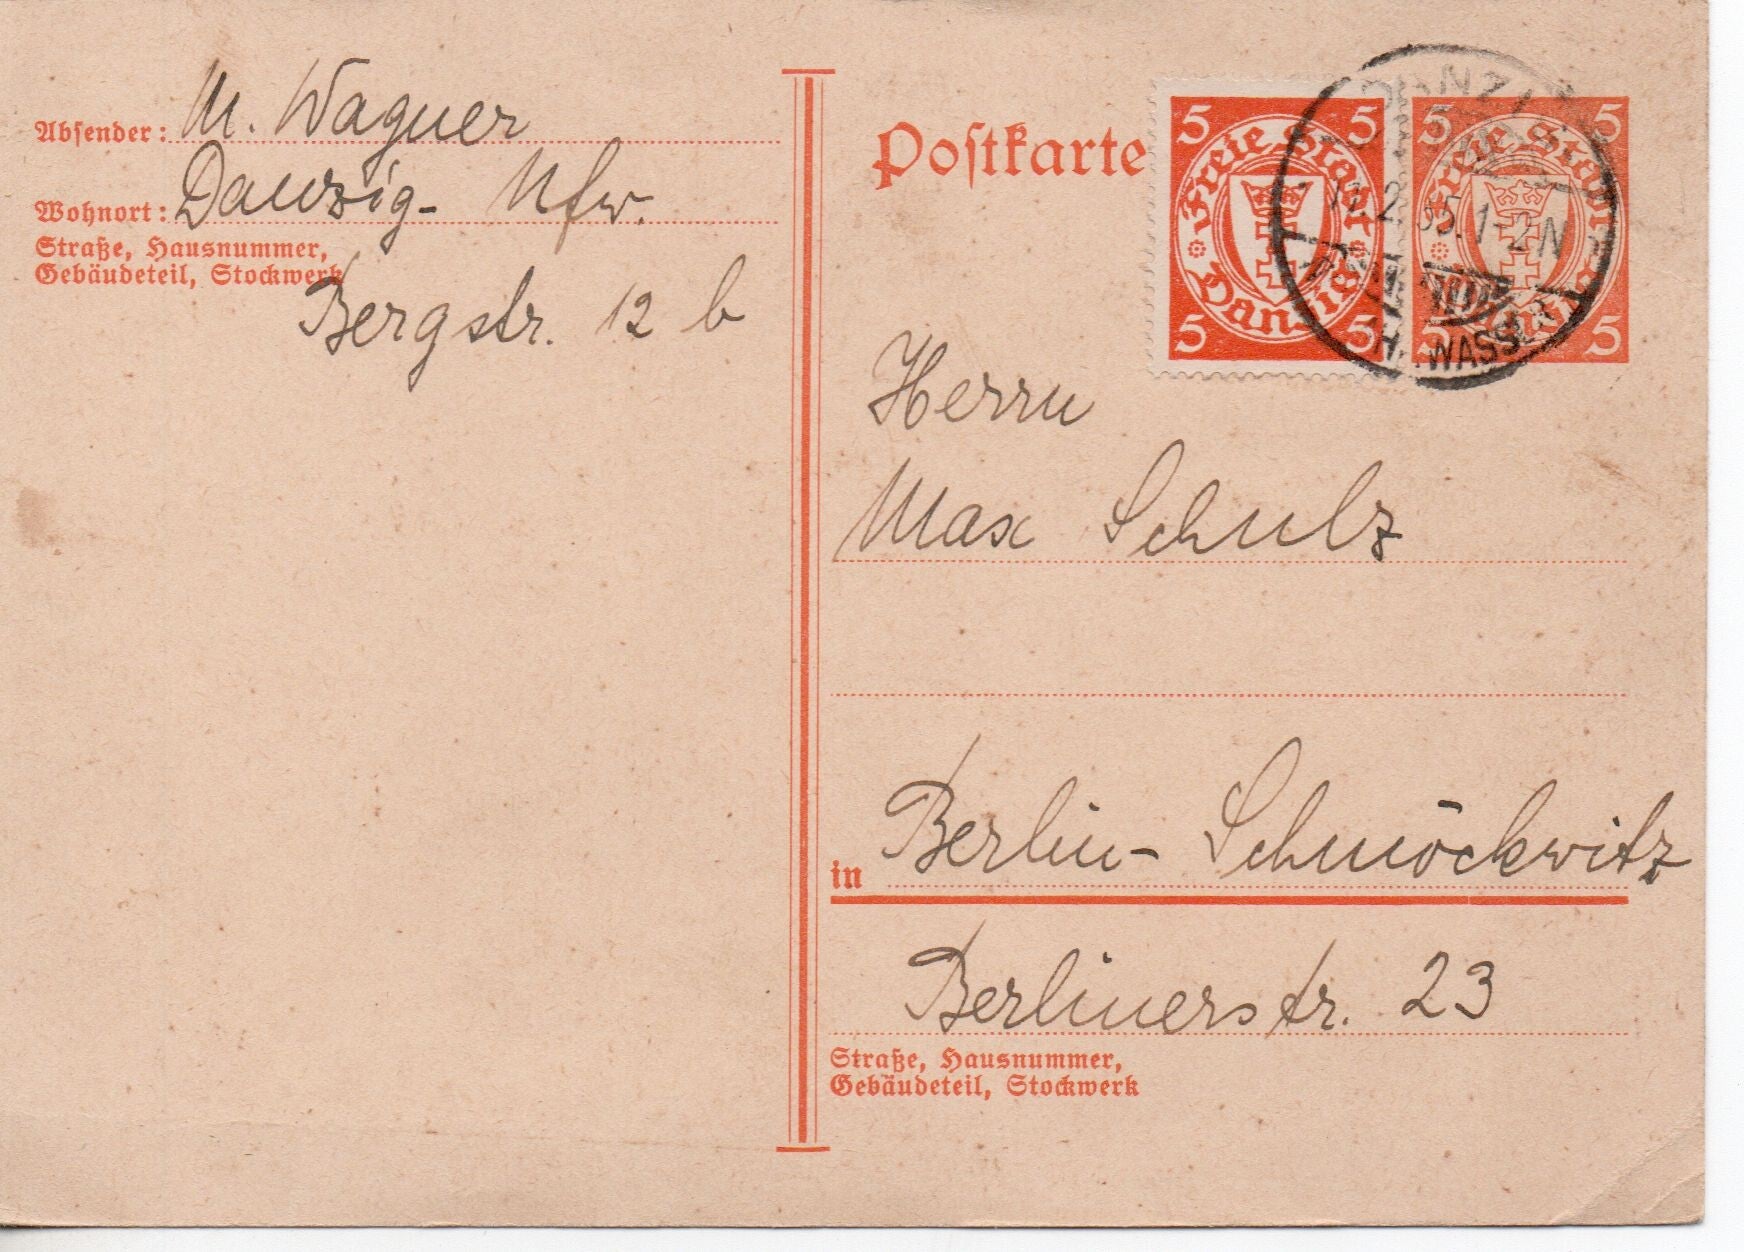 Absender: M. Wagner
Wohnort: Danzig- Nfw.
Straße, Hausnummer,
Gebäudeteil, Stockwerk
Bergstr. 12 b
Postkarte
5 5
Freie Stadt
Danzig
5 5
5 5
Freie Stadt
Danzig
5 5
DANZIG
35.1-2N
Herrn
Max Schulz
in Berlin- Schmöckwitz
Berlinerstr. 23
Straße, Hausnummer,
Gebäudeteil, Stockwerk